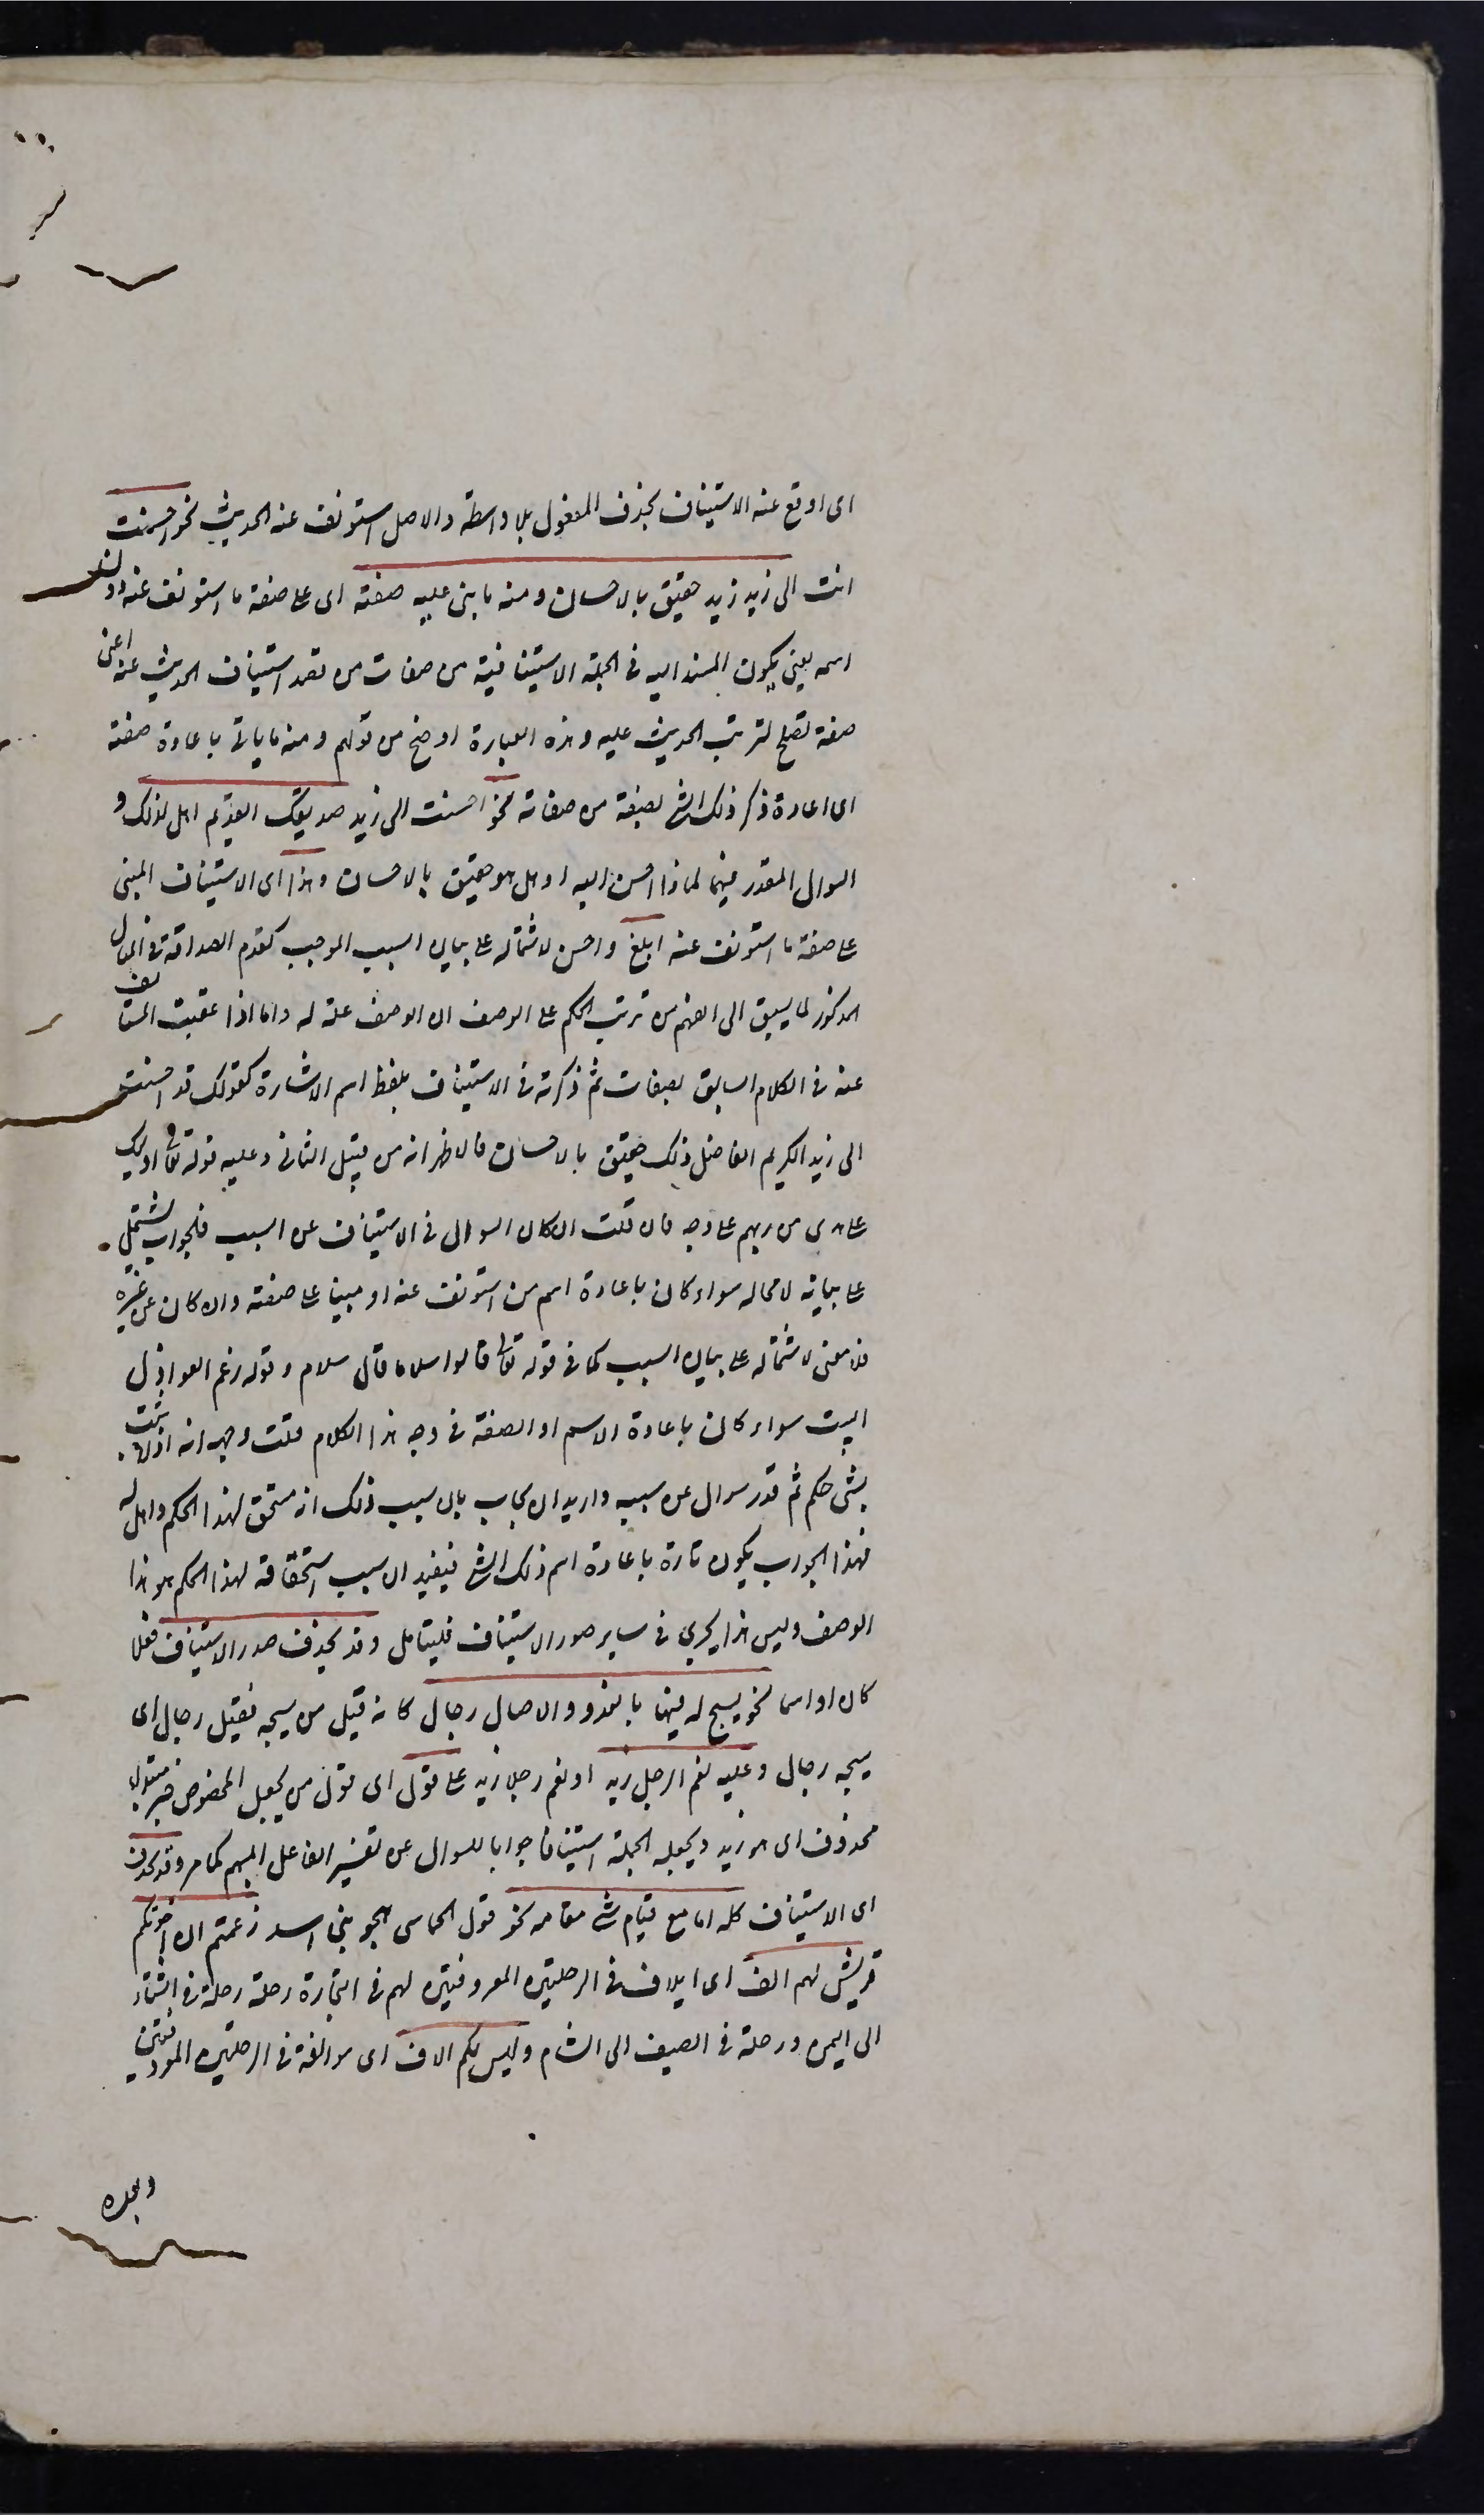 اى اوقع عنه الاستيناف بحذف المفعول بلا واسطة والاصل استونف عنه الحديث نحو احسنت
انت الى زيد زيد حقيق بالاحسان ومنه ما بنى عليه صفته اى على صفة ما استونف عنه دون
اسمه يعنى يكون المسند اليه فى الجملة الاستينافية من صفات من قصد استيناف الحديث عنه اعنى
صفة تصلح لترتب الحديث عليه وهذه العبارة اوضح من قولهم ومنه ما ياتى باعادة صفته
اى اعادة ذكر ذلك الشئ بصفة من صفاته نحو احسنت الى زيد صديقك القديم اهل لذلك و
السوال المقدر فيهما لماذا احسن اليه او هل هو حقيق بالاحسان وهذا اى الاستيناف المبنى
على صفة ما استونف عنه ابلغ واحسن لاشتماله على بيان السبب الموجب كقدم الصداقة فى المثال
المذكور لما يسبق الى الفهم من ترتب الحكم على الوصف ان الوصف علة له واما اذا عقبت المستانف
عنه فى الكلام السابق بصفات ثم ذكرته فى الاستيناف بلفظ اسم الاشارة كقولك قد احسنت
الى زيد الكريم الفاضل ذلك حقيق بالاحسان فالاظهر انه من قبيل الثانى وعليه قوله تعالى اولئك
على هدى من ربهم على وجه فان قلت ان كان السوال فى الاستيناف عن السبب فالجواب يشتمل
على بيانه لا محاله سواء كان باعادة اسم من استونف عنه او مبنيا على صفته وان كان عن غيره
فلا معنى لاشتماله على بيان السبب كما فى قوله تعالى قالوا سلاما قال سلام وقوله زعم العواذل
البيت سواء كان باعادة الاسم او الصفة فى وجه هذا الكلام قلت وجهه انه اذا اثبت
بشئ حكم ثم قدر سوال عن سببه واريد ان يجاب بان سبب ذلك انه مستحق لهذا الحكم واهل له
فهذا الجواب يكون تارة باعادة اسم ذلك الشئ فيفيد ان سبب استحقاقه لهذا الحكم هو هذا
الوصف وليس هذا يجرى فى ساير صور الاستيناف فليتامل وقد يحذف صدر الاستيناف فعلا
كان او اسما نحو يسبح له فيها بالغدو والاصال رجال كانه قيل من يسبحه فقيل رجال اى
يسبحه رجال وعليه نعم الرجل زيد او نعم رجلا زيد على قول اى قول من يجعل المخصوص خبر مبتداء
محذوف اى هو زيد ويجعله الجملة استينافا جوابا للسوال عن تفسير الفاعل المبهم كما مر وقد يحذف
اى الاستيناف كله اما مع قيام شئ مقامه نحو قول الحماسى يهجو بنى اسد زعمتم ان اخوتكم
قريش لهم الف اى ايلاف فى الرحلتين المعروفتين لهم فى التجارة رحلة رحلة فى الشتاء
الى اليمن ورحلة فى الصيف الى الشام وليس لكم الاف اى موالفة فى الرحلتين المعروفتين
وبعده